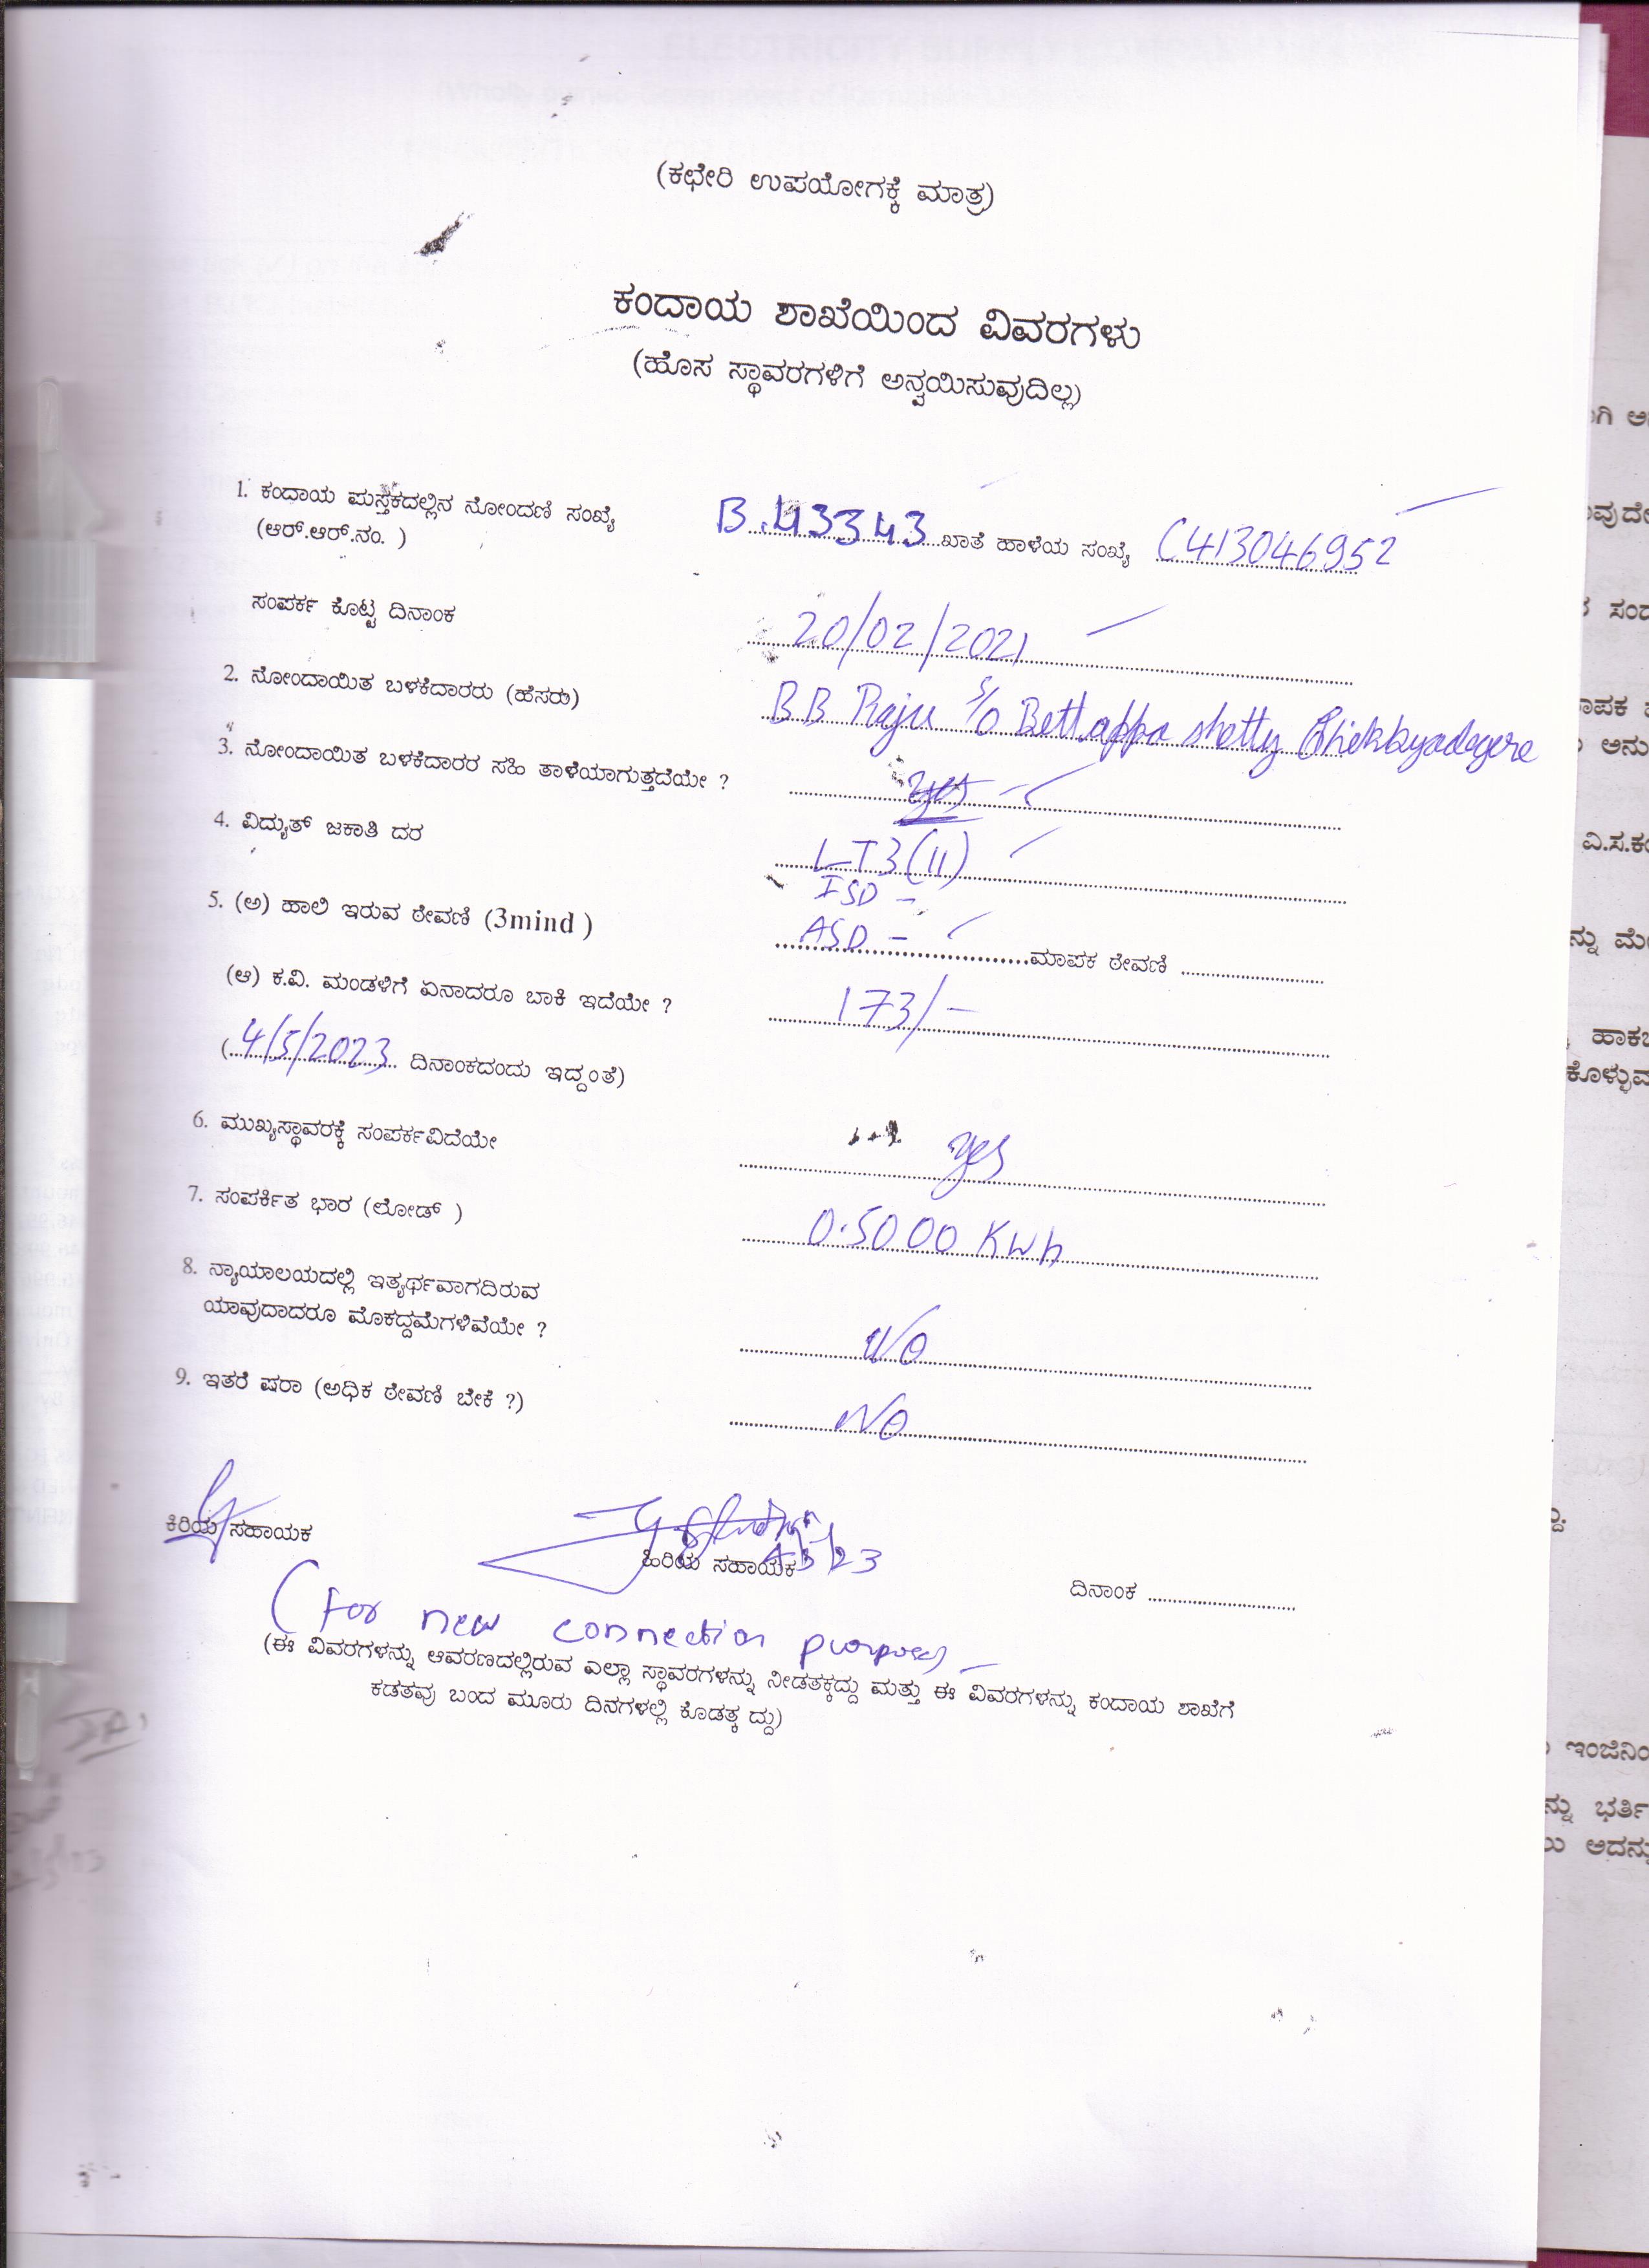 (ಕಛೇರಿ ಉಪಯೋಗಕ್ಕೆ ಮಾತ್ರ)
ಕಂದಾಯ ಶಾಖೆಯಿಂದ ವಿವರಗಳು
(ಹೊಸ ಸ್ಥಾವರಗಳಿಗೆ ಅನ್ವಯಿಸುವುದಿಲ್ಲ)
1. ಕಂದಾಯ ಪುಸ್ತಕದಲ್ಲಿನ ನೋಂದಣಿ ಸಂಖ್ಯೆ B.43343 ಖಾತೆ ಹಾಳೆಯ ಸಂಖ್ಯೆ C413046952
(ಆರ್.ಆರ್.ನಂ. )
ಸಂಪರ್ಕ ಕೊಟ್ಟ ದಿನಾಂಕ 20/02/2021
2. ನೋಂದಾಯಿತ ಬಳಕೆದಾರರು (ಹೆಸರು) BB Raju S/O Bettappa shetty Chikkyadegere
3. ನೋಂದಾಯಿತ ಬಳಕೆದಾರರ ಸಹಿ ತಾಳೆಯಾಗುತ್ತದೆಯೇ ? yes
4. ವಿದ್ಯುತ್ ಜಕಾತಿ ದರ LT3(II)
ISD -
5. (ಅ) ಹಾಲಿ ಇರುವ ಠೇವಣಿ (3mind ) ASD - ಮಾಪಕ ಠೇವಣಿ
(ಆ) ಕ.ವಿ. ಮಂಡಳಿಗೆ ಏನಾದರೂ ಬಾಕಿ ಇದೆಯೇ ? 173/-
(4/5/2023 ದಿನಾಂಕದಂದು ಇದ್ದಂತೆ)
6. ಮುಖ್ಯಸ್ಥಾವರಕ್ಕೆ ಸಂಪರ್ಕವಿದೆಯೇ yes
7. ಸಂಪರ್ಕಿತ ಭಾರ (ಲೋಡ್ ) 0.5000 Kwh
8. ನ್ಯಾಯಾಲಯದಲ್ಲಿ ಇತ್ಯರ್ಥವಾಗದಿರುವ
ಯಾವುದಾದರೂ ಮೊಕದ್ದಮೆಗಳಿವೆಯೇ ? No
9. ಇತರೆ ಷರಾ (ಅಧಿಕ ಠೇವಣಿ ಬೇಕೆ ?) No
ಕಿರಿಯ ಸಹಾಯಕ ಹಿರಿಯ ಸಹಾಯಕ ದಿನಾಂಕ
(For new connection purpose)
(ಈ ವಿವರಗಳನ್ನು ಆವರಣದಲ್ಲಿರುವ ಎಲ್ಲಾ ಸ್ಥಾವರಗಳನ್ನು ನೀಡತಕ್ಕದ್ದು ಮತ್ತು ಈ ವಿವರಗಳನ್ನು ಕಂದಾಯ ಶಾಖೆಗೆ
ಕಡತವು ಬಂದ ಮೂರು ದಿನಗಳಲ್ಲಿ ಕೊಡತಕ್ಕ ದ್ದು)